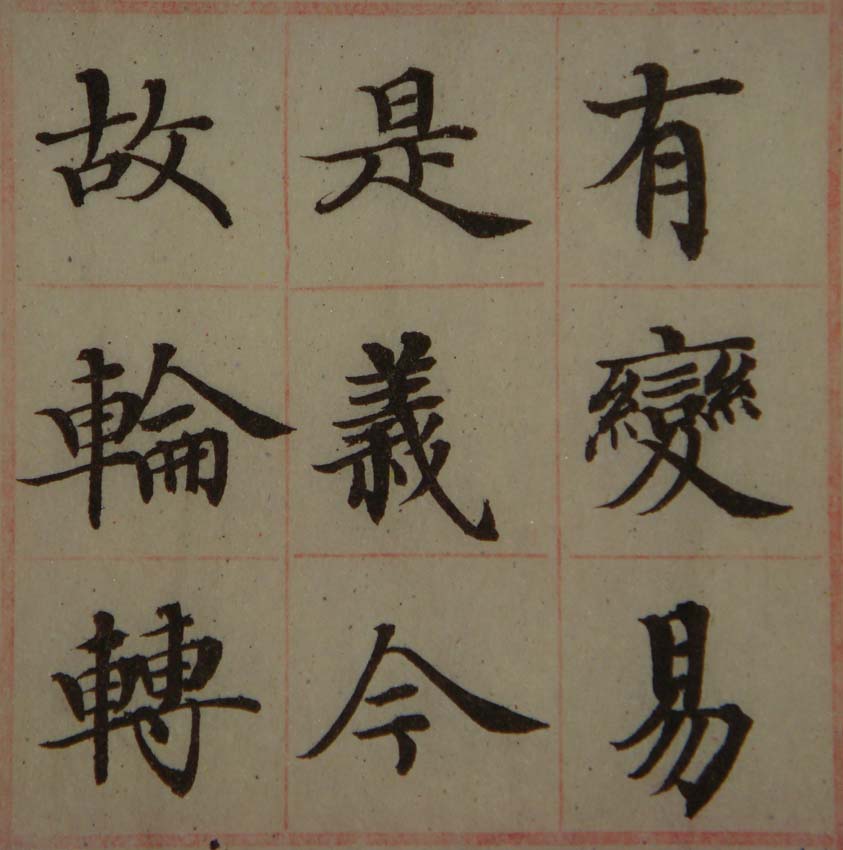 有變易
是義今
故輪轉